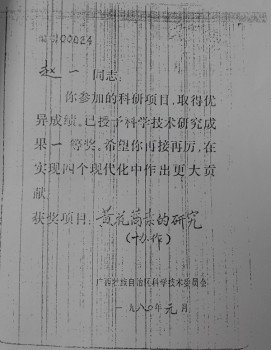 编号00024
赵一 同志：
你参加的科研项目，取得优
异成绩，已授予科学技术研究成
果一等奖。希望你再接再厉，在
实现四个现代化中作出更大贡
献。
获奖项目：黄花蒿素的研究
(协作)
广西壮族自治区科学技术委员会
一九八〇年元月